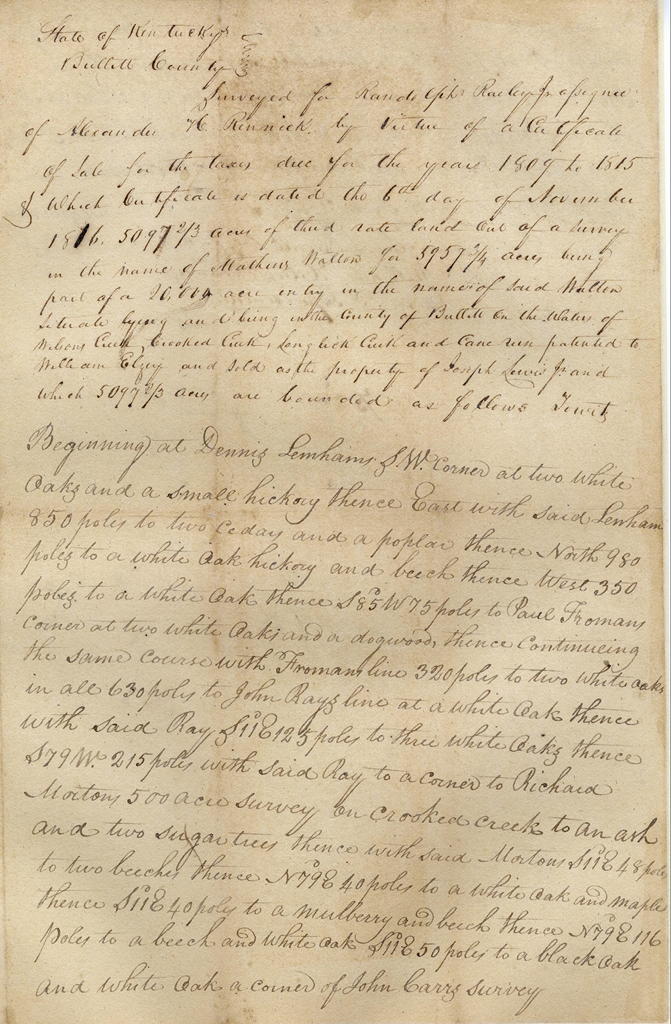 State of Kentucky
Bullitt County
Surveyed for Randolph Railey Jr assignee
of Alexander H Rennick by Virtue of a Certificate
of Sale for the taxes due for the years 1809 to 1815
Which Certificate is dated the 6th day of November
1816. 5097 2/3 acres of third rate land out of a survey
in the name of Mathew Walton for 5957 3/4 acres being
part of a 20,000 acre entry in the name of said Walton
Situate lying and being in the County of Bullitt on the Waters of
Wilsons Creek, Crooked Creek, Longlick Creek and Cane run patented to
William Elzey and sold as the property of Joseph Lewis Jr and
which 5097 2/3 acres are bounded as follows Towit
Beginning at Dennis Lemhams S.W. Corner at two white
Oaks and a small hickory thence East with said Lemham
850 poles to two cedars and a poplar thence North 980
poles to a white Oak hickory and beech thence West 350
poles to a white Oak thence S85W 75 poles to Paul Fromans
corner at two white Oaks and a dogwood, thence Continueing
the same course with Fromans line 320 poles to two white oaks
in all 630 poles to John Rays line at a white Oak thence
with said Ray S11E 125 poles to three white Oaks thence
S79W. 215 poles with said Ray to a corner to Richard
Mortons 500 acre survey on crooked creek to an ash
and two sugar trees thence with said Mortons S11E 48 poles
to two beeches thence N79E 40 poles to a white Oak and maple
thence S11E 40 poles to a mulberry and beech thence N79E 116
poles to a beech and white oak S11E 50 poles to a black Oak
and white Oak a corner of John Carrs survey